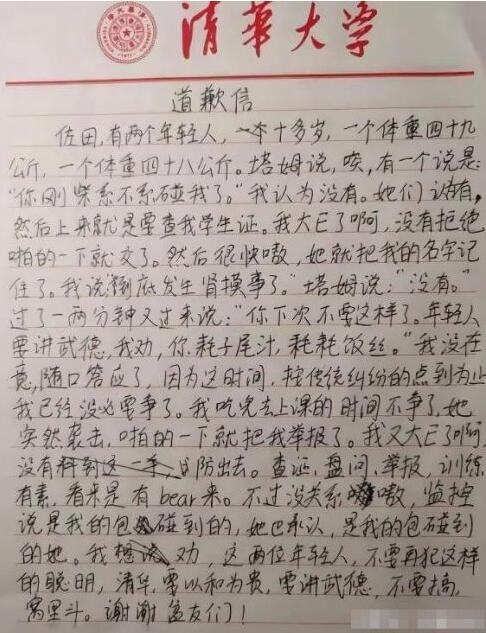 清華大学
道歉信
佐田,有两个年轻人,一个十多岁,一个体重四十九
公斤,一个体重四十八公斤。塔姆说,唉,有一个说是:
“你刚柴系不系碰我了。”我认为没有。她们认有,
然后上来就是要查我学生证。我大E了啊,没有拒绝
啪的一下就交了。然后很快嗷,她就把我的名字记
住了。我说倒底发生肾摸事了。”塔姆说:“没有。”
过了一两分钟又过来说:“你下次不要这样了。年轻人
要讲武德,我劝,你耗子尾汁,耗耗饭丝。”我没在
意,随口答应了,因为这时间,按传统纠纷的点到为止
我已经没必要争了。我吃完去上课的时间不争了,她
突然袭击,啪的一下就把我举报了。我又大E了啊,
没有料到这一手,防出去。查证、盘问、举报,训练
有素,看来是有bear来。不过没关系嗷,监控
说是我的包碰到的,她巴承认,是我的包碰到
的她。我劝,这两位年轻人,不要再犯这样
的聪明,清华,要以和为贵,要讲武德,不要搞,
窝里斗。谢谢盆友们!